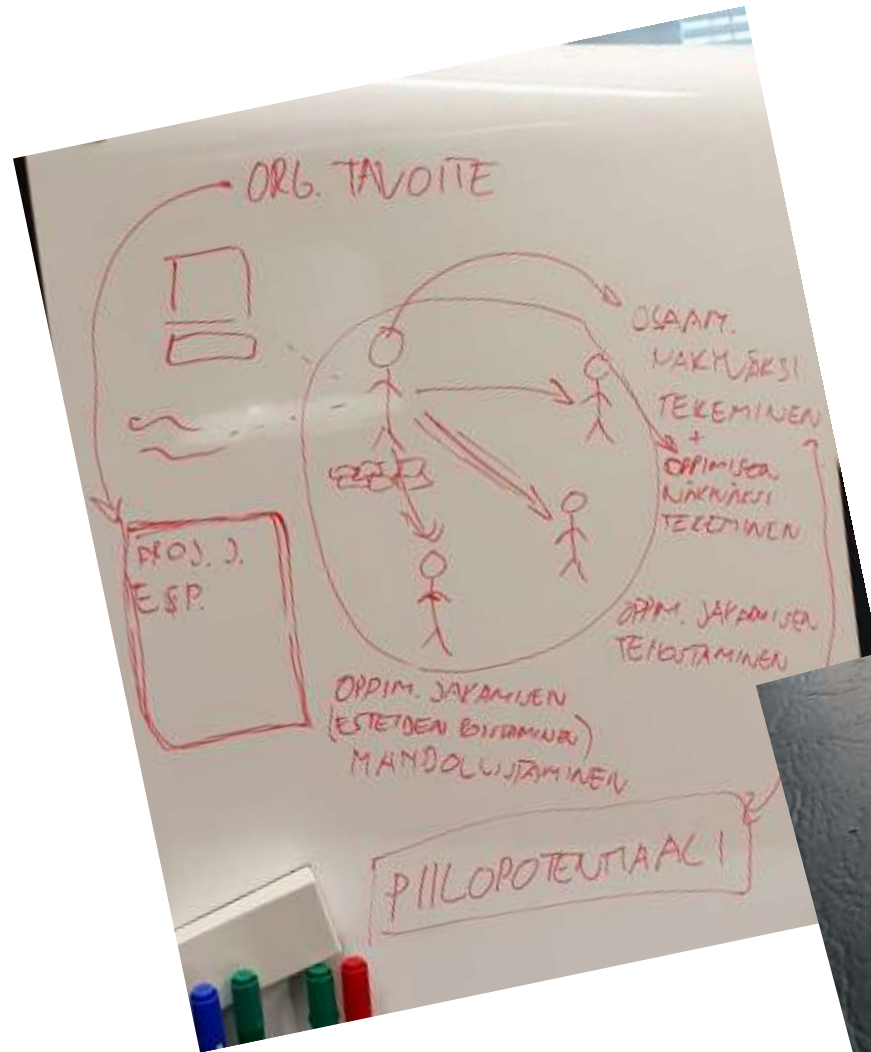 ORG. TAVOITE
OSAAM.
NÄKYVÄKSI
TEKEMINEN
+
OPPIMISEN
NÄKYVÄKSI
TEKEMINEN
PROJ. J.
ESP.
OPPIM. JAKAMISEN
TEHOSTAMINEN
OPPIM. JAKAMISEN
(ESTEIDEN POISTAMINEN)
MAHDOLLISTAMINEN
PIILOPOTENTIAALI